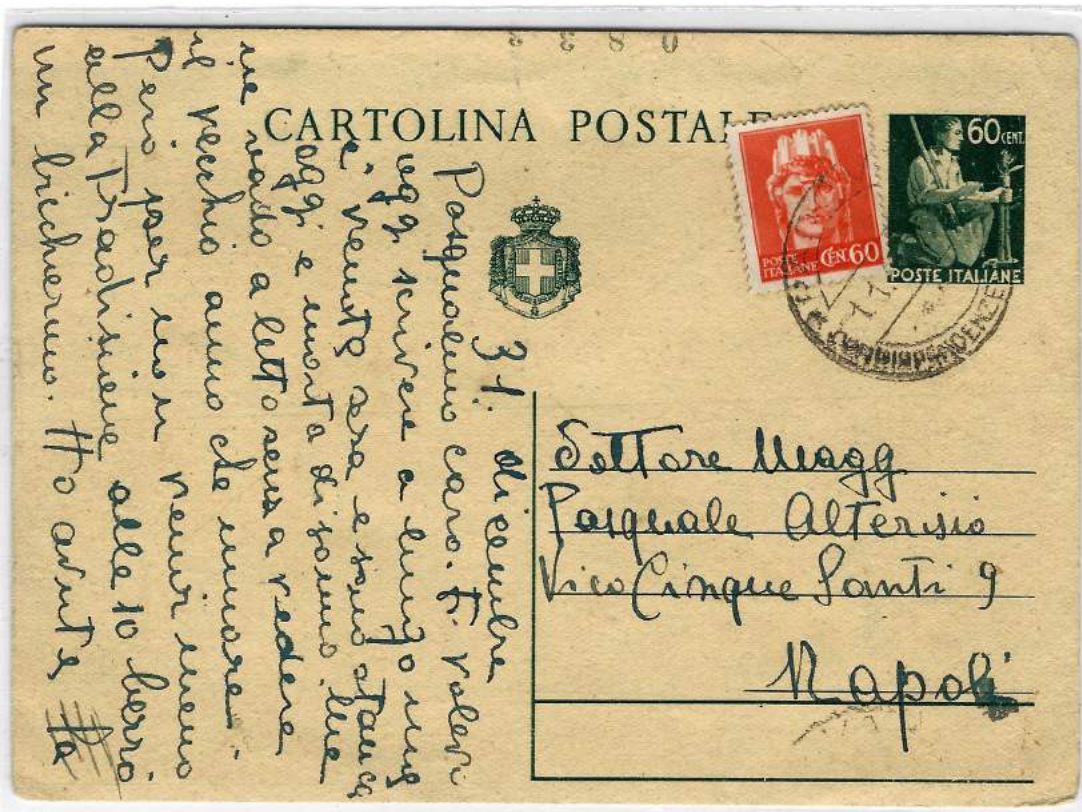 CARTOLINA POSTALE
60 CENT.
POSTE ITALIANE
POSTE ITALIANE CEN. 60
31. dicembre
Pasqualino caro. Ti volevi
oggi scrivere a lungo ma
e' venuta sera e sono stanca
oggi e morta di sonno. Me
ne vado a letto senza vedere
il vecchio anno che muore.
Però per non venir meno
alla Tradizione alle 10 berrò
un bicherino. Ho avuto
Dottore Magg
Pasquale Alterisio
Vico Cinque Santi 9
Napoli